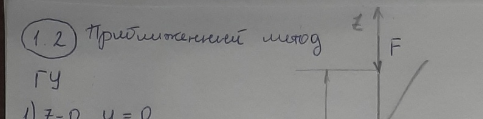 1.2 Приближенный метод
z
F
ГУ
1) z=0 u=0